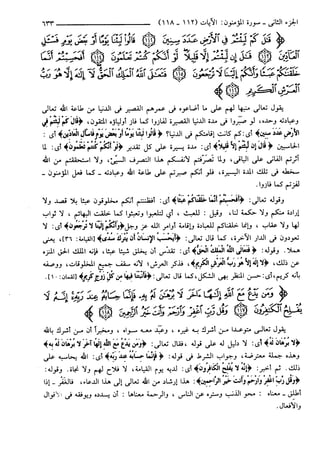 الجزء الثاني - سورة المؤمنون: الآيات (١١٢ - ١١٨) ٦٣٣
﴿قَٰلَ كَمْ لَبِثْتُمْ فِي الْأَرْضِ عَدَدَ سِنِينَ ﴿١١٢﴾ قَالُوا لَبِثْنَا يَوْمًا أَوْ بَعْضَ يَوْمٍ فَاسْأَلِ
الْعَادِّينَ ﴿١١٣﴾ قَالَ إِن لَّبِثْتُمْ إِلَّا قَلِيلًا لَّوْ أَنَّكُمْ كُنتُمْ تَعْلَمُونَ ﴿١١٤﴾ أَفَحَسِبْتُمْ أَنَّمَا
خَلَقْنَاكُمْ عَبَثًا وَأَنَّكُمْ إِلَيْنَا لَا تُرْجَعُونَ ﴿١١٥﴾ فَتَعَالَى اللَّهُ الْمَلِكُ الْحَقُّ لَا إِلَٰهَ إِلَّا هُوَ رَبُّ
الْعَرْشِ الْكَرِيمِ ﴿١١٦﴾
يقول تعالى منبها لهم على ما أضاعوه في عمرهم القصير في الدنيا من طاعة الله تعالى
وعبادته وحده، لو صبروا في مدة الدنيا القصيرة لفازوا كما فاز أولياؤه المتقون، ﴿قال كم لبثتم في
الأرض عدد سنين﴾ أي: كم كانت إقامتكم في الدنيا؟ ﴿قالوا لبثنا يوما أو بعض يوم فاسأل العادين﴾ أي:
الحاسبين ﴿قال إن لبثتم إلا قليلا﴾ أي: مدة يسيرة على كل تقدير ﴿لو أنكم كنتم تعلمون﴾ أي: لما
آثرتم الفاني على الباقي، ولما تصرفتم لأنفسكم هذا التصرف السيئ، ولا استحققتم من الله
سخطه في تلك المدة اليسيرة، فلو أنكم صبرتم على طاعة الله وعبادته - كما فعل المؤمنون -
لفزتم كما فازوا.
وقوله تعالى: ﴿أفحسبتم أنما خلقناكم عبثا﴾ أي: أفظننتم أنكم مخلوقون عبثا بلا قصد ولا
إرادة منكم ولا حكمة لنا، وقيل: للعبث، أي لتلعبوا وتعبثوا كما خلقت البهائم، لا ثواب
لها ولا عقاب، وإنما خلقناكم للعبادة وإقامة أوامر الله عز وجل ﴿وأنكم إلينا لا ترجعون﴾ أي: لا
تعودون في الدار الآخرة، كما قال تعالى: ﴿أيحسب الإنسان أن يترك سدى﴾ [القيامة: ٣٦]، يعني
هملا. وقوله: ﴿فتعالى الله الملك الحق﴾ أي: تقدس أن يخلق شيئا عبثا، فإنه الملك الحق المنزه
عن ذلك، ﴿لا إله إلا هو رب العرش الكريم﴾، فذكر العرش؛ لأنه سقف جميع المخلوقات، ووصفه
بأنه كريم، أي: حسن المنظر بهي الشكل، كما قال تعالى: ﴿فأنبتنا فيها من كل زوج كريم﴾ [لقمان: ١٠].
يقول تعالى متوعدا من أشرك به غيره، وعبد معه سواه، ومخبرا أن من أشرك بالله
﴿لا برهان له﴾ أي: لا دليل له على قوله، فقال تعالى: ﴿ومن يدع مع الله إلها آخر لا برهان له به﴾
وهذه جملة معترضة، وجواب الشرط في قوله: ﴿فإنما حسابه عند ربه﴾ أي: الله يحاسبه على
ذلك. ثم أخبر: ﴿إنه لا يفلح الكافرون﴾ أي: لديه يوم القيامة، لا فلاح لهم ولا نجاة. وقوله:
﴿وقل رب اغفر وارحم وأنت خير الراحمين﴾: هذا إرشاد من الله تعالى إلى هذا الدعاء، فالغفر - إذا
أطلق - معناه: محو الذنب وستره عن الناس، والرحمة معناها: أن يسدده ويوفقه في الأقوال
والأفعال.